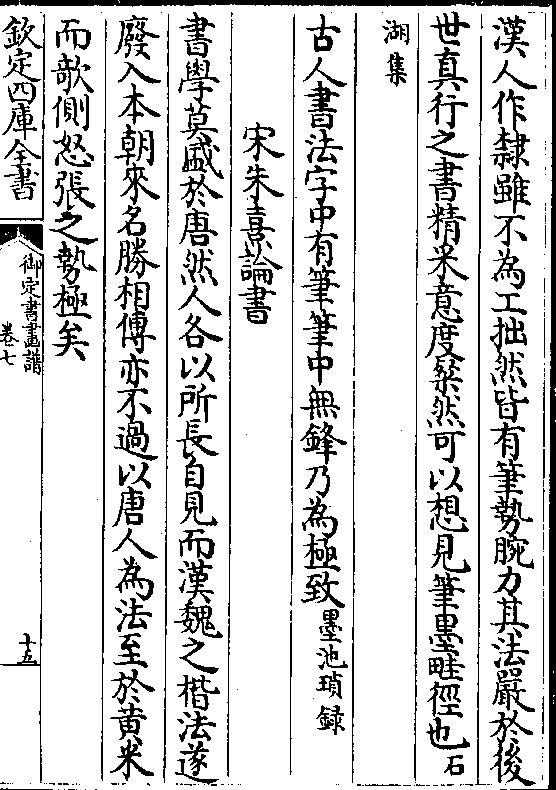 漢人作隸雖不為工拙然皆有筆勢腕力其法嚴於後
世真行之書精采意度粲然可以想見筆墨畦徑也石
湖集
古人書法字中有筆筆中無鋒乃為極致墨池瑣録
宋朱熹論書
書學莫盛於唐然人各以所長自見而漢魏之楷法遂
廢入本朝來名勝相傳亦不過以唐人為法至於黄米
而欹側怒張之勢極矣
欽定四庫全書
御定書畫譜
卷七
十五